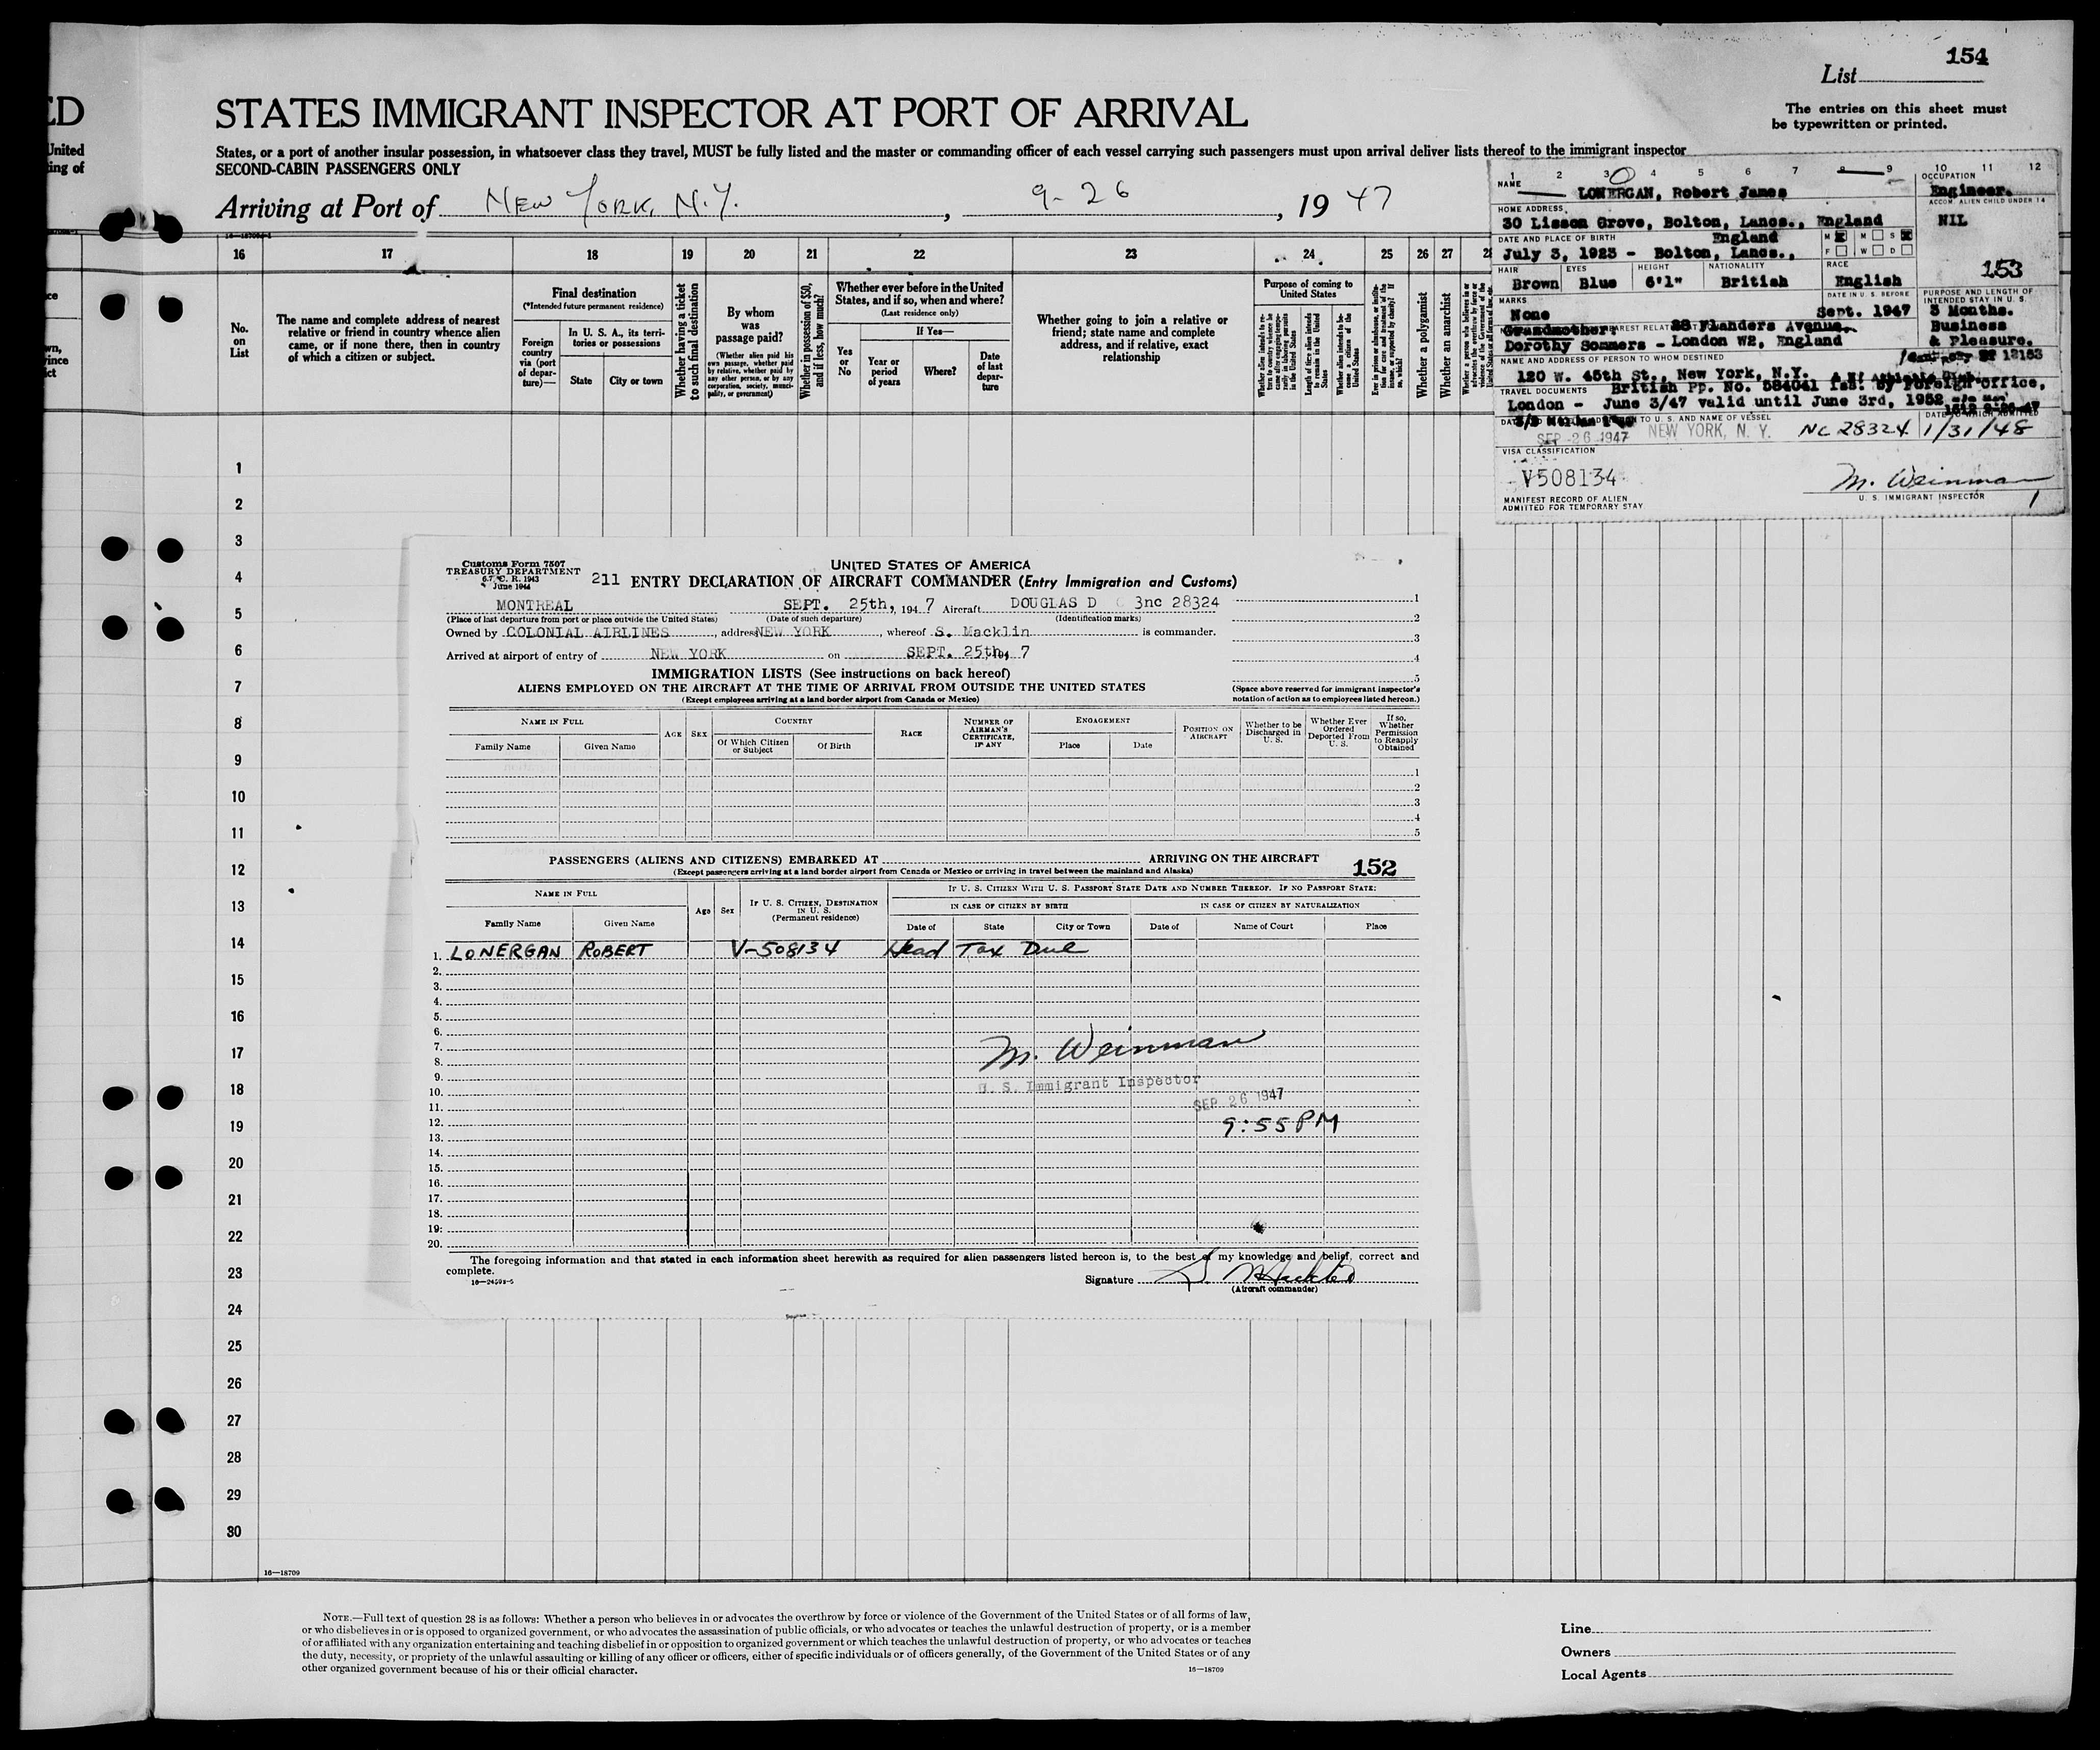 154
List
The entries on this sheet must
be typewritten or printed.
ED
United
ing of
STATES IMMIGRANT INSPECTOR AT PORT OF ARRIVAL
States, or a port of another insular possession, in whatsoever class they travel, MUST be fully listed and the master or commanding officer of each vessel carrying such passengers must upon arrival deliver lists thereof to the immigrant inspector
SECOND-CABIN PASSENGERS ONLY
Arriving at Port of NEW YORK, N.Y. , 9-26 , 19 47
16 17 18 19 20 21 22 23 24 25 26 27
No. on List
The name and complete address of nearest
relative or friend in country whence alien
came, or if none there, then in country
of which a citizen or subject.
Final destination
(*Intended future permanent residence)
Foreign country via (port of departure)—
In U. S. A., its territories or possessions
State
City or town
Whether having a ticket to such final destination
By whom was passage paid?
(Whether alien paid his own passage, whether paid by relative, whether paid by any other person, or by any corporation, society, municipality, or government)
Whether in possession of $50, and if less, how much?
Whether ever before in the United
States, and if so, when and where?
(Last residence only)
Yes or No
If Yes—
Year or period of years
Where?
Date of last departure
Whether going to join a relative or
friend; state name and complete
address, and if relative, exact
relationship
Purpose of coming to
United States
Whether a polygamist
Whether an anarchist
1 2 3 4 5 6 7 8 9 10 11 12
NAME LONERGAN, Robert James
OCCUPATION Engineer.
HOME ADDRESS
30 Lisson Grove, Bolton, Lancs., England
ACCOM. ALIEN CHILD UNDER 14
NIL
DATE AND PLACE OF BIRTH England
July 3, 1923 - Bolton, Lancs.,
M M S
F W D
HAIR EYES HEIGHT NATIONALITY RACE
Brown Blue 6'1" British English
153
MARKS
None
DATE IN U. S. BEFORE
Sept. 1947
PURPOSE AND LENGTH OF
INTENDED STAY IN U. S.
3 Months.
Business
& Pleasure.
Grandmother: 28 Flanders Avenue.
Dorothy Sommers - London W2, England
NAME AND ADDRESS OF PERSON TO WHOM DESTINED
120 W. 45th St., New York, N.Y.
TRAVEL DOCUMENTS British Pp. No. 584041 iss. by Foreign Office,
London - June 3/47 valid until June 3rd, 1952
TO U. S. AND NAME OF VESSEL
SEP 26 1947 NEW YORK, N. Y. NC 28324 1/31/48
VISA CLASSIFICATION
V508134
M. Weinman
U. S. IMMIGRANT INSPECTOR
MANIFEST RECORD OF ALIEN
ADMITTED FOR TEMPORARY STAY
1
1
2
3
4
5
6
7
8
9
10
11
12
13
14
15
16
17
18
19
20
21
22
23
24
25
26
27
28
29
30
Customs Form 7507
TREASURY DEPARTMENT
6.7, C. R. 1943
June 1944
UNITED STATES OF AMERICA
211 ENTRY DECLARATION OF AIRCRAFT COMMANDER (Entry Immigration and Customs)
MONTREAL SEPT. 25th, 194 7 Aircraft DOUGLAS D C 3nc 28324
(Place of last departure from port or place outside the United States) (Date of such departure) (Identification marks)
Owned by COLONIAL AIRLINES, address NEW YORK, whereof S. Macklin is commander.
Arrived at airport of entry of NEW YORK on SEPT. 25th, 194 7
1
2
3
4
5
(Space above reserved for immigrant inspector's
notation of action as to employees listed hereon.)
IMMIGRATION LISTS (See instructions on back hereof)
ALIENS EMPLOYED ON THE AIRCRAFT AT THE TIME OF ARRIVAL FROM OUTSIDE THE UNITED STATES
(Except employees arriving at a land border airport from Canada or Mexico)
NAME IN FULL
Family Name
Given Name
AGE
SEX
COUNTRY
Of Which Citizen or Subject
Of Birth
RACE
NUMBER OF AIRMAN'S CERTIFICATE, IF ANY
ENGAGEMENT
Place
Date
POSITION ON AIRCRAFT
Whether to be Discharged in U. S.
Whether Ever Ordered Deported From U. S.
If so, Whether Permission to Reapply Obtained
1
2
3
4
5
PASSENGERS (ALIENS AND CITIZENS) EMBARKED AT ARRIVING ON THE AIRCRAFT 152
(Except passengers arriving at a land border airport from Canada or Mexico or arriving in travel between the mainland and Alaska)
NAME IN FULL
Family Name
Given Name
Age
Sex
IF U. S. CITIZEN, DESTINATION IN U. S.
(Permanent residence)
IF U. S. CITIZEN WITH U. S. PASSPORT STATE DATE AND NUMBER THEREOF. IF NO PASSPORT STATE:
IN CASE OF CITIZEN BY BIRTH
IN CASE OF CITIZEN BY NATURALIZATION
Date of
State
City or Town
Date of
Name of Court
Place
1. LONERGAN ROBERT V-508134 Head Tax Due
2.
3.
4.
5.
6.
7.
8.
9.
10.
11.
12.
13.
14.
15.
16.
17.
18.
19.
20.
M. Weinman
U. S. Immigrant Inspector
SEP 26 1947
9:55 PM
The foregoing information and that stated in each information sheet herewith as required for alien passengers listed hereon is, to the best of my knowledge and belief, correct and
complete.
Signature S. Macklin
(Aircraft commander)
16—18709
NOTE.—Full text of question 28 is as follows: Whether a person who believes in or advocates the overthrow by force or violence of the Government of the United States or of all forms of law,
or who disbelieves in or is opposed to organized government, or who advocates the assassination of public officials, or who advocates or teaches the unlawful destruction of property, or is a member
of or affiliated with any organization entertaining and teaching disbelief in or opposition to organized government or which teaches the unlawful destruction of property, or who advocates or teaches
the duty, necessity, or propriety of the unlawful assaulting or killing of any officer or officers, either of specific individuals or of officers generally, of the Government of the United States or of any
other organized government because of his or their official character.
16—18709
Line
Owners
Local Agents